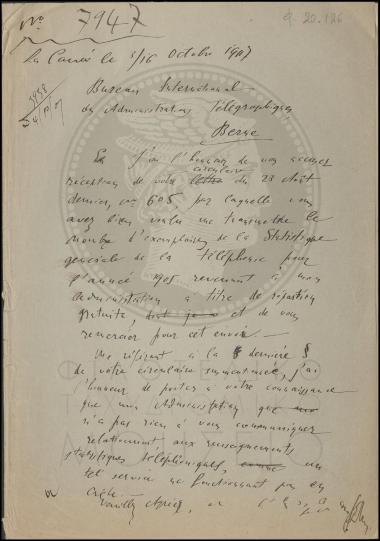 No. 7947
9.20.126
La Canée le 3/16 Octobre 1907
Bureau International
des Administrations Télégraphiques
Berne
J'ai l'honneur de vous accuser
circulaire
réception de votre lettre du 23 Août
dernier, no 605 par laquelle vous
avez bien voulu me transmettre le
nombre d'exemplaires de la Statistique
générale de la téléphonie pour
l'année 1905 revenant à mon
Administration à titre de répartition
gratuite, et de vous
remercier pour cet envoi.—
Me référant à la dernière §
de votre circulaire susmentionnée, j'ai
l'honneur de porter à votre connaissance
que mon Administration
n'a pas rien à vous communiquer
relativement aux renseignements
statistiques téléphoniques, un
tel service ne fonctionnant pas en
Crète.
Veuillez Agréer,